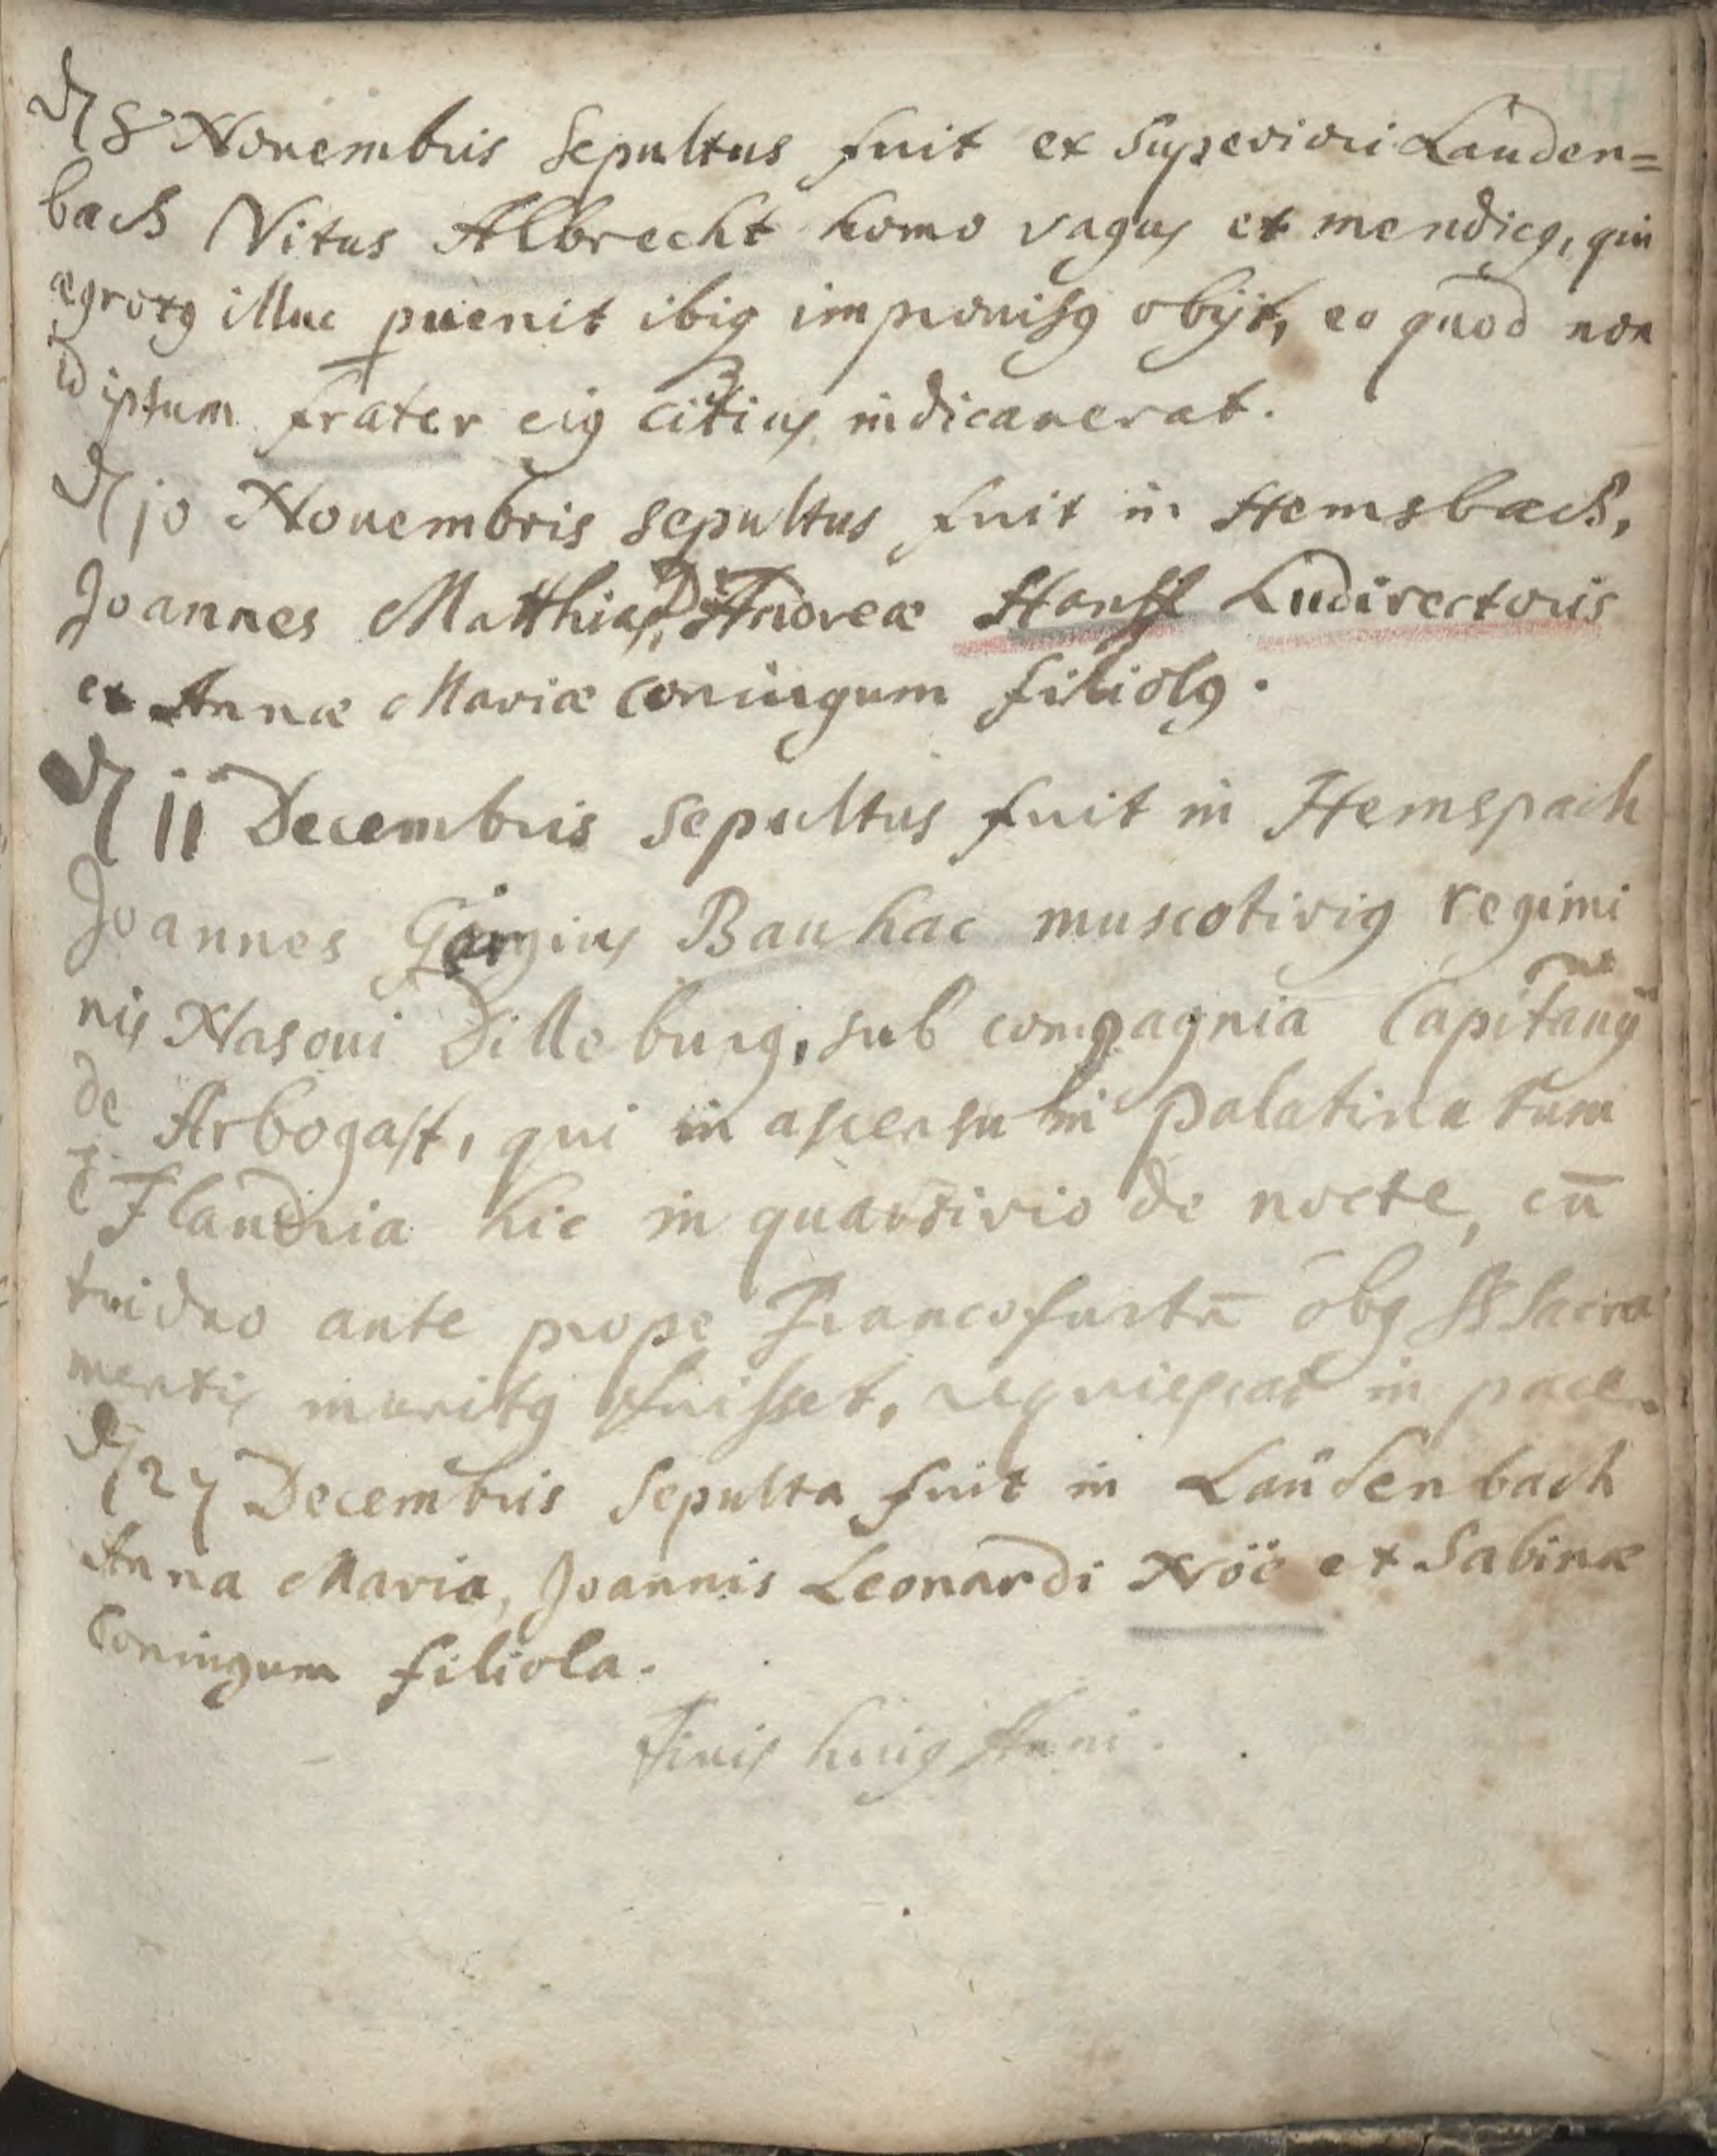 8 Nouembris sepultus fuit ex superiori Lauden=
bach Vitus Albrecht homo vagus et mendicꝯ, qui
ægrotꝯ illuc ꝑuenit ibiꝗ improuisꝯ obijt, eo quod non
id ipsum frater eiꝯ citius indicauerat.
10 Nouembris sepultus fuit in Hemsbach,
Joannes Matthias, D: Andreæ Hanff Ludirectoris
et Annæ Mariæ coniugum filiolꝯ.
11 Decembris sepultus fuit in Hemspach
Joannes Görgius Bauhac muscotiriꝯ regimi
nis Nasoui Dilleburg, sub compagnia Capitanij
de Arbogast, qui in ascensu in palatinatum
è Flandria hic in quartirio de nocte, cū
triduo ante prope Francofurtū obꝯ SS Sacra
mentis munitꝯ fuisset, requiescat in pace.
27 Decembris sepulta fuit in Laudenbach
Anna Maria, Joannis Leonardi Nöë et Sabinæ
Coniugum filiola.
Finis huiꝯ Anni.